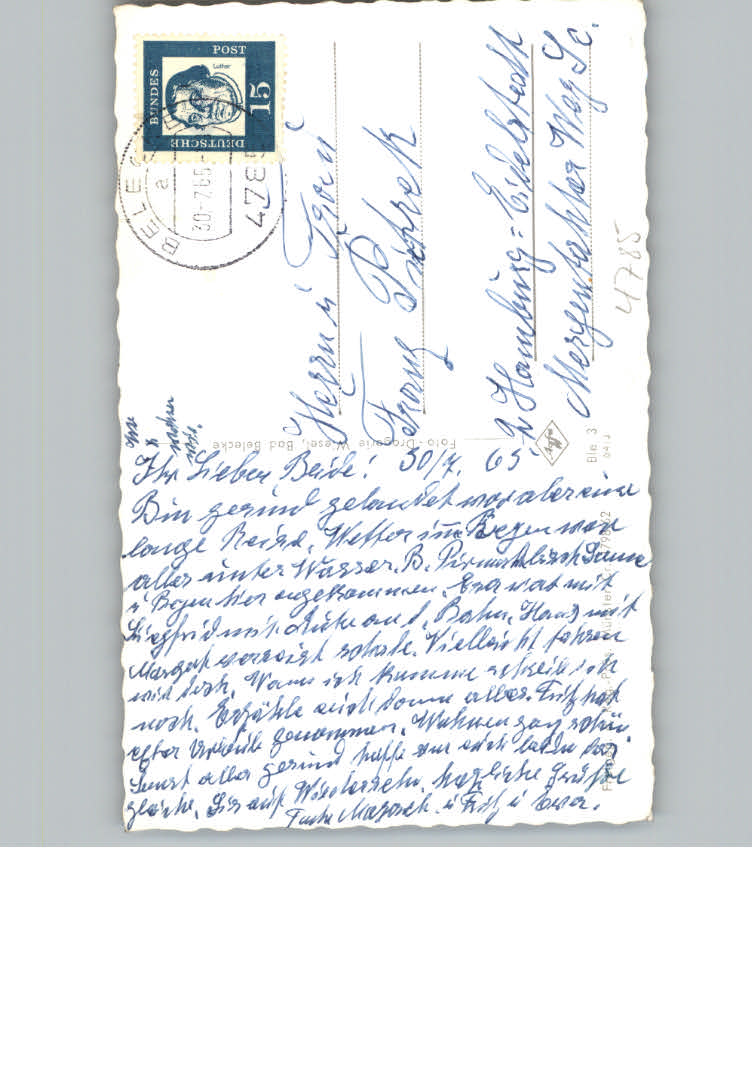 DEUTSCHE
BUNDES
POST
15
Luther
BELECKE
a
30.-7.65
478
Herrn u Frau
Franz
2 Hamburg = Eidelstedt
Mergenthaler Weg 5c.
4785
Foto - Drogerie Wiesel, Bad Belecke
Agfa
Ble 3
Ihr Lieben Beide! 30/7. 65
Bin gesund gelandet war aber eine
lange Reise. Wetter im Regen war
alles unter Wasser. B. Sonne
u Regen hier angekommen. Ewa war mit
Siegfried mit Auto an d. Bahn. Hans mit
Margret verreist schade. Vielleicht fahren
wir doch. Wann ich komme schreibe ich
noch. Erzähle euch dann alles. Fritz hat
Urlaub genommen. Wohnen ganz schön.
Sonst alles gesund hoffe von euch beiden das
gleiche. Bis auf Wiedersehn herzliche Grüße
Tante u Fritz u Ewa.